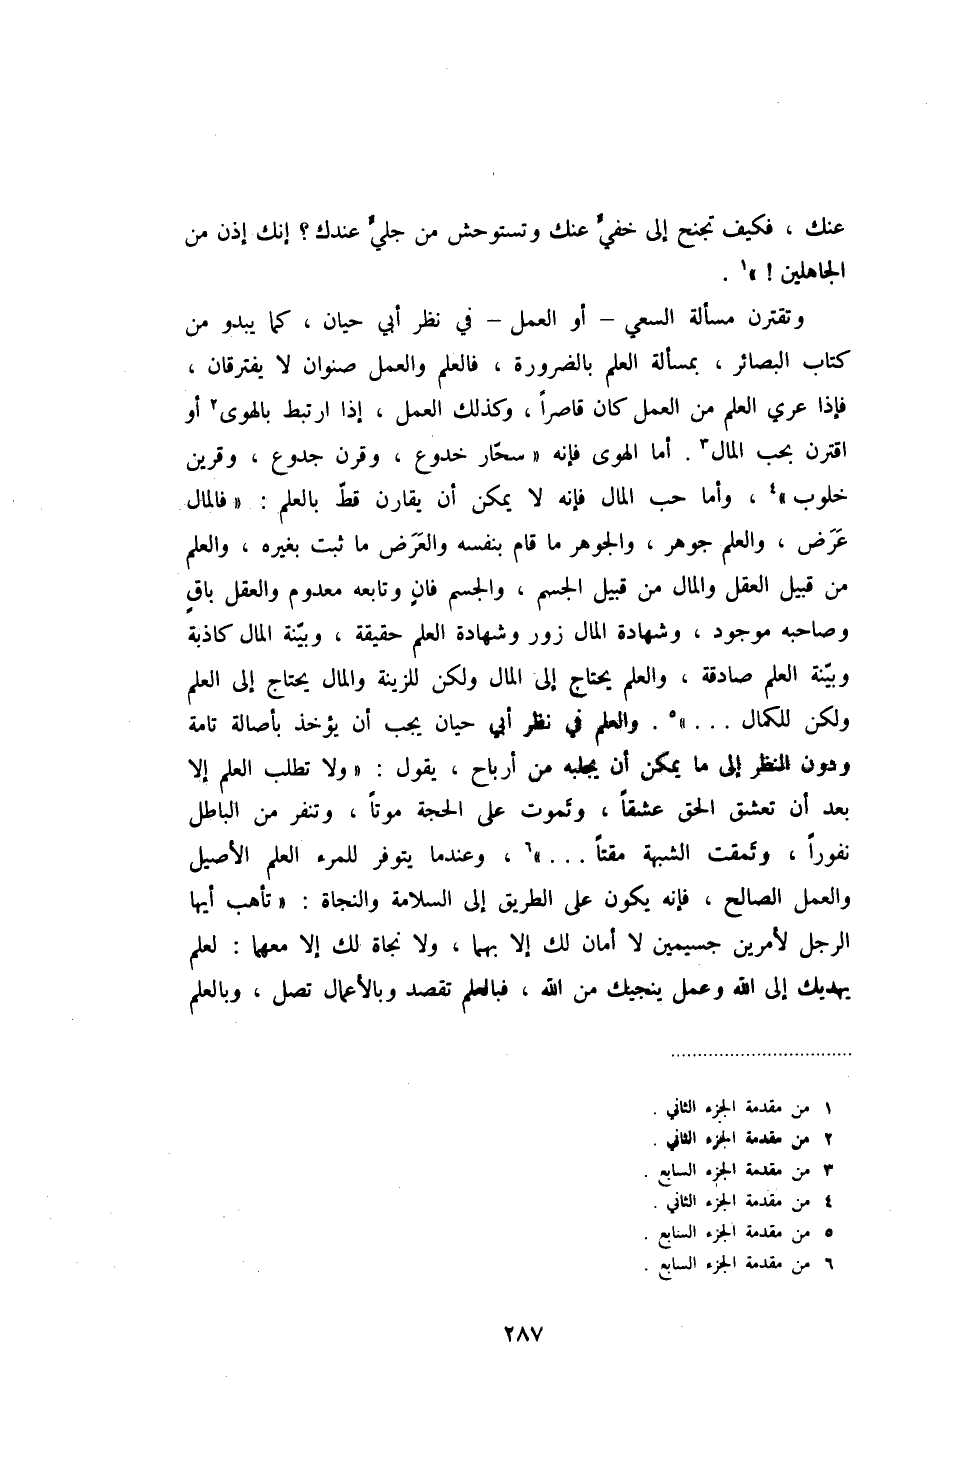 عنك ، فكيف تجنح إلى خفيٍّ عنك وتستوحش من جليٍّ عندك ؟ إنك إذن من
الجاهلين ! »١ .
وتقترن مسألة السعي – أو العمل – في نظر أبي حيان ، كما يبدو من
كتاب البصائر ، بمسألة العلم بالضرورة ، فالعلم والعمل صنوان لا يفترقان ،
فإذا عري العلم من العمل كان قاصراً ، وكذلك العمل ، إذا ارتبط بالهوى٢ أو
اقترن بحب المال٣ . أما الهوى فإنه « سحّار خدوع ، وقرن جدوع ، وقرين
خلوب »٤ ، وأما حب المال فإنه لا يمكن أن يقارن قطّ بالعلم : « فالمال
عَرَض ، والعلم جوهر ، والجوهر ما قام بنفسه والعَرَض ما ثبت بغيره ، والعلم
من قبيل العقل والمال من قبيل الجسم ، والجسم فانٍ وتابعه معدوم والعقل باقٍ
وصاحبه موجود ، وشهادة المال زور وشهادة العلم حقيقة ، وبيّنة المال كاذبة
وبيّنة العلم صادقة ، والعلم يحتاج إلى المال ولكن للزينة والمال يحتاج إلى العلم
ولكن للكمال . . . »٥ . والعلم في نظر أبي حيان يجب أن يؤخذ بأصالة تامة
ودون النظر إلى ما يمكن أن يجلبه من أرباح ، يقول : « ولا تطلب العلم إلا
بعد أن تعشق الحق عشقاً ، وتموت على الحجة موتاً ، وتنفر من الباطل
نفوراً ، وتمقت الشبهة مقتاً . . . »٦ ، وعندما يتوفر للمرء العلم الأصيل
والعمل الصالح ، فإنه يكون على الطريق إلى السلامة والنجاة : « تأهب أيها
الرجل لأمرين جسيمين لا أمان لك إلا بهما ، ولا نجاة لك إلا معهما : لعلم
يهديك إلى الله وعمل ينجيك من الله ، فبالعلم تقصد وبالأعمال تصل ، وبالعلم
١ من مقدمة الجزء الثاني .
٢ من مقدمة الجزء الثاني .
٣ من مقدمة الجزء السابع .
٤ من مقدمة الجزء الثاني .
٥ من مقدمة الجزء السابع .
٦ من مقدمة الجزء السابع .
٢٨٧